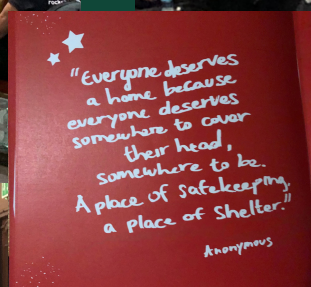 "Everyone deserves
a home because
everyone deserves
somewhere to cover
their head,
somewhere to be.
A place of safekeeping,
a place of shelter."
Anonymous